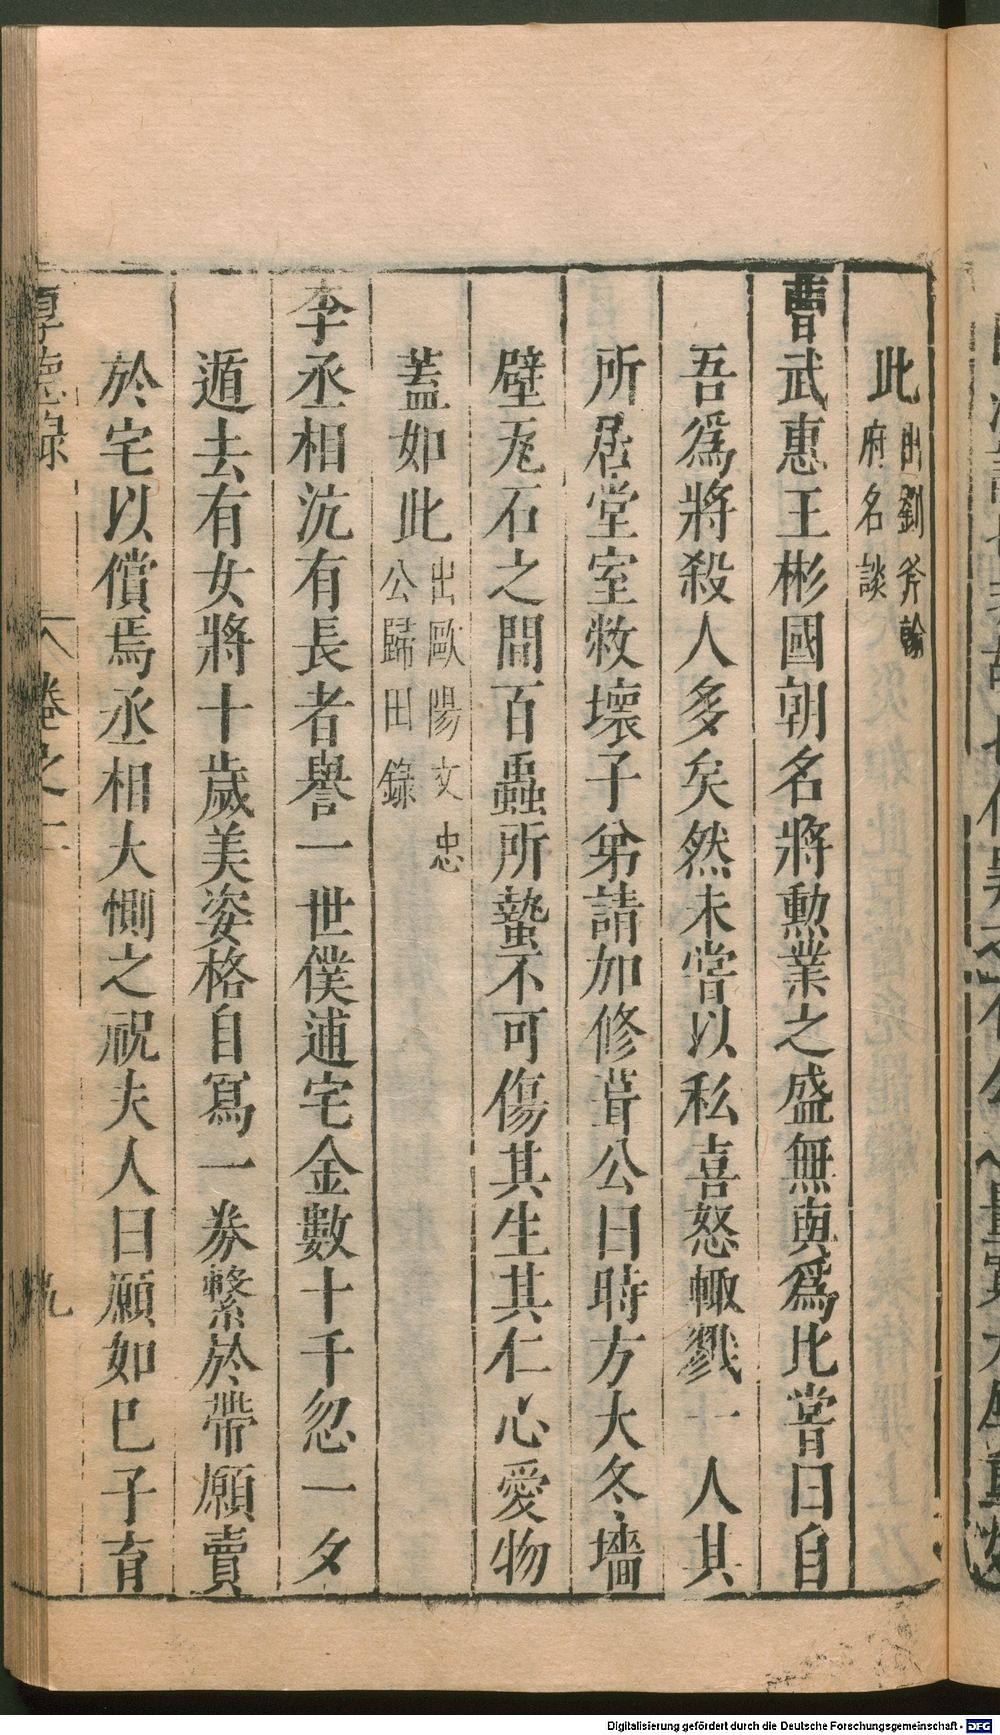 此出劉斧翰府名談
曹武惠王彬國朝名將勲業之盛無與爲比嘗曰自
吾爲將殺人多矣然未嘗以私喜怒輙戮一人其
所居堂室敝壞子弟請加修葺公曰時方大冬墻
壁瓦石之間百蟲所蟄不可傷其生其仁心愛物
蓋如此出歐陽文忠公歸田錄
李丞相沆有長者譽一世僕逋宅金數十千忽一夕
遁去有女將十歲美姿格自冩一券繫於帶願賣
於宅以償焉丞相大惻之祝夫人曰願如已子育
厚德錄 卷之一 九
Digitalisierung gefördert durch die Deutsche Forschungsgemeinschaft - DFG